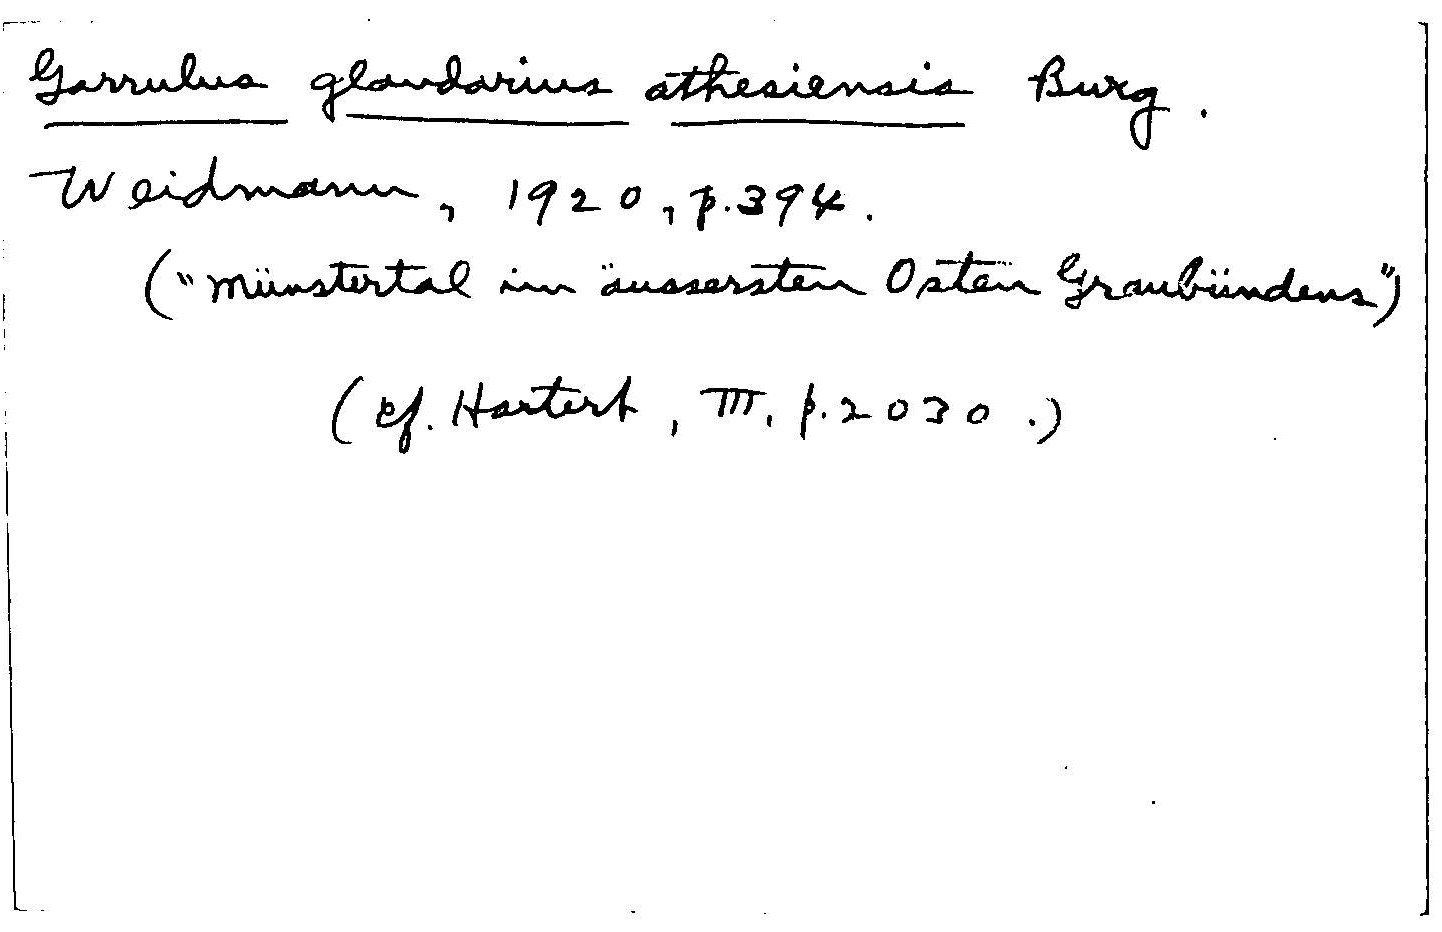 Garrulus glandarius athesiensis Burg.
Weidmann, 1920, p.394.
("Münstertal im äussersten Osten Graubündens")
(cf. Hartert, III, p.2030.)